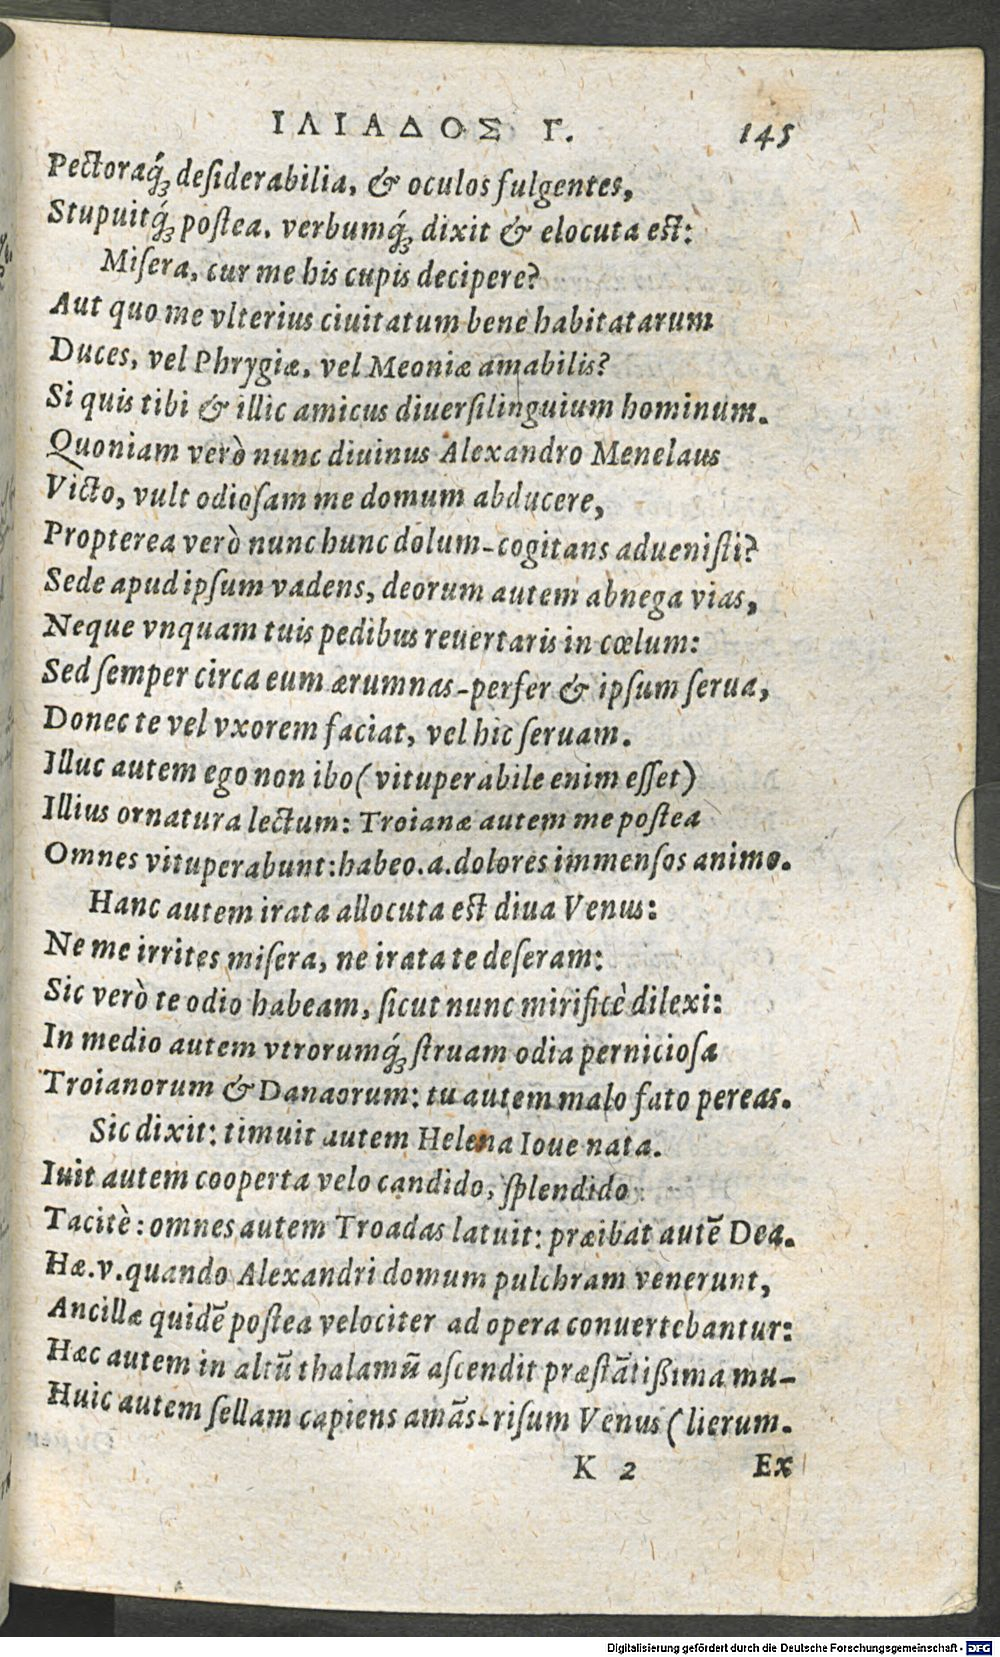 ΙΛΙΑΔΟΣ Γ. 145
Pectoraq́; desiderabilia, & oculos fulgentes,
Stupuitq́; postea. verbumq́; dixit & elocuta est:
Misera, cur me his cupis decipere?
Aut quo me vlterius ciuitatum bene habitatarum
Duces, vel Phrygiæ, vel Meoniæ amabilis?
Si quis tibi & illic amicus diuersilinguium hominum.
Quoniam verò nunc diuinus Alexandro Menelaus
Victo, vult odiosam me domum abducere,
Propterea verò nunc hunc dolum-cogitans aduenisti?
Sede apud ipsum vadens, deorum autem abnega vias,
Neque vnquam tuis pedibus reuertaris in cœlum:
Sed semper circa eum ærumnas-perfer & ipsum serua,
Donec te vel vxorem faciat, vel hic seruam.
Illuc autem ego non ibo (vituperabile enim esset)
Illius ornatura lectum: Troianæ autem me postea
Omnes vituperabunt: habeo.a.dolores immensos animo.
Hanc autem irata allocuta est diua Venus:
Ne me irrites misera, ne irata te deseram:
Sic verò te odio habeam, sicut nunc mirificè dilexi:
In medio autem vtrorumq́; struam odia perniciosa
Troianorum & Danaorum: tu autem malo fato pereas.
Sic dixit: timuit autem Helena Ioue nata.
Iuit autem cooperta velo candido, splendido
Tacitè: omnes autem Troadas latuit: præibat autē Dea.
Hæ.v.quando Alexandri domum pulchram venerunt,
Ancillæ quidē postea velociter ad opera conuertebantur:
Hæc autem in altū thalamū ascendit præstātißima mu-
Huic autem sellam capiens amās-risum Venus (lierum.
K 2 Ex
Digitalisierung gefördert durch die Deutsche Forschungsgemeinschaft - DFG